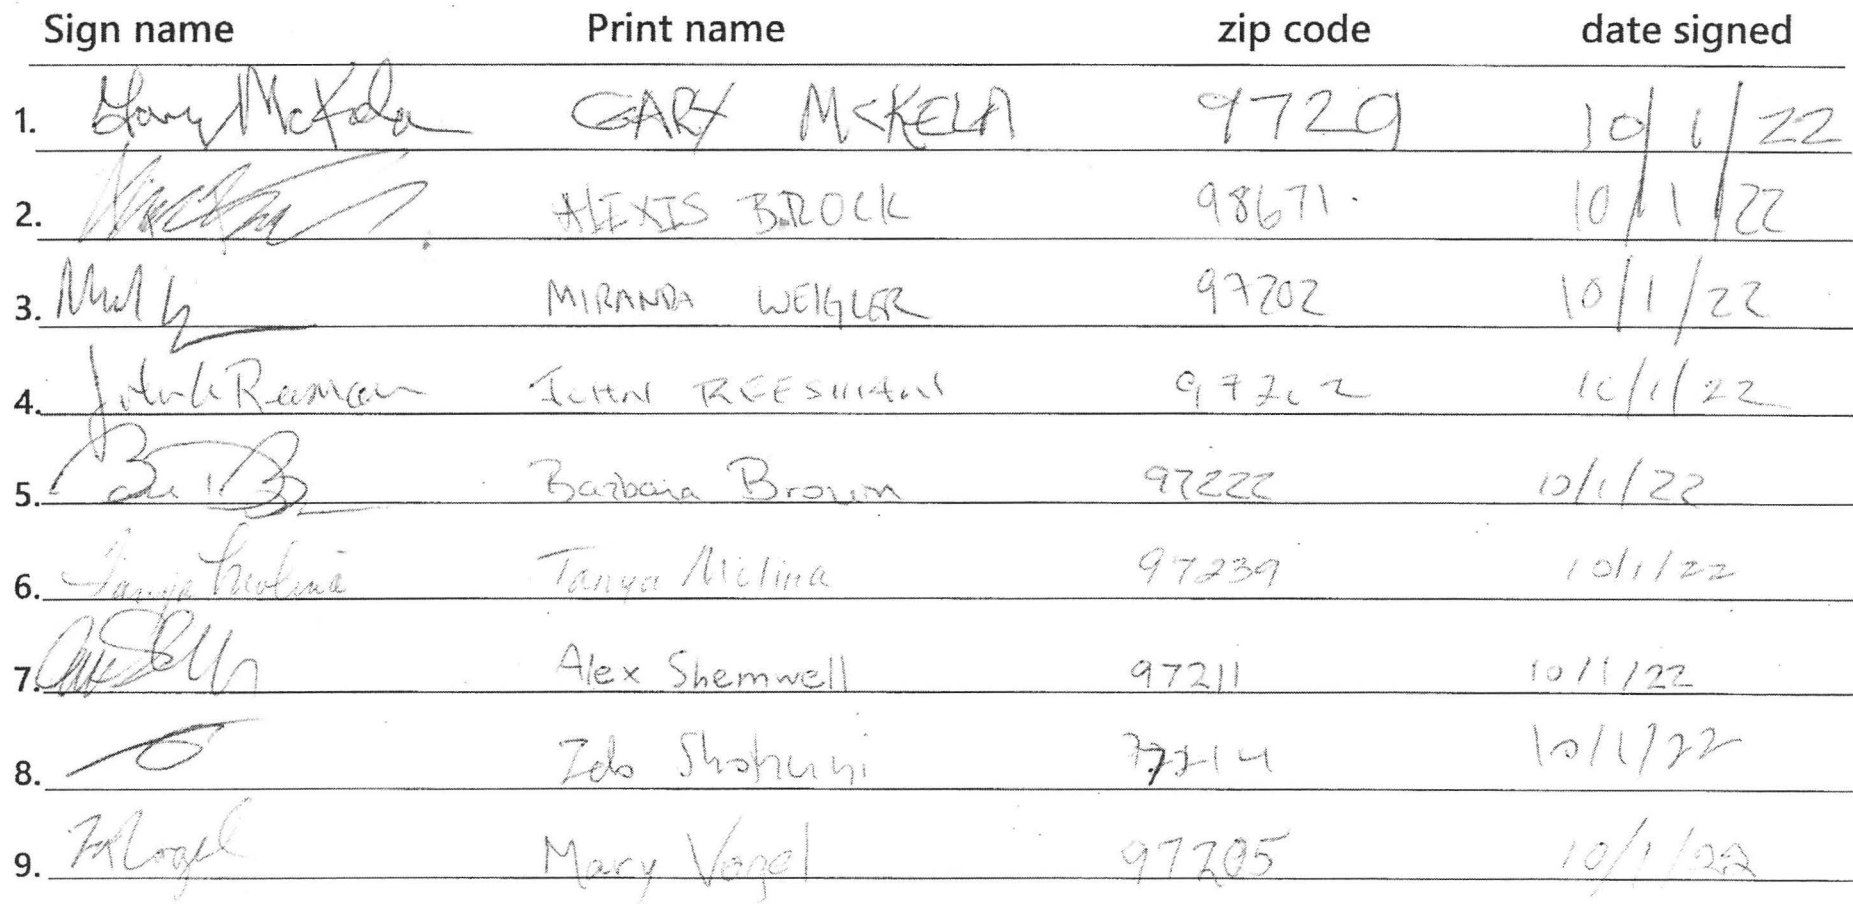 Sign name Print name zip code date signed
1. Gary McKela GARY McKELA 9720 10/1/22
2. ALEXIS BROCK 98671 10/1/22
3. MIRANDA WEIGLER 97202 10/1/22
4. John L Reesman JOHN REESMAN 97202 10/1/22
5. Barbara Brown 97222 10/1/22
6. Tanya Molina Tanya Molina 97239 10/1/22
7. Alex Shemwell 97211 10/1/22
8. 10/1/22
9. Mary Vogel 97205 10/1/22